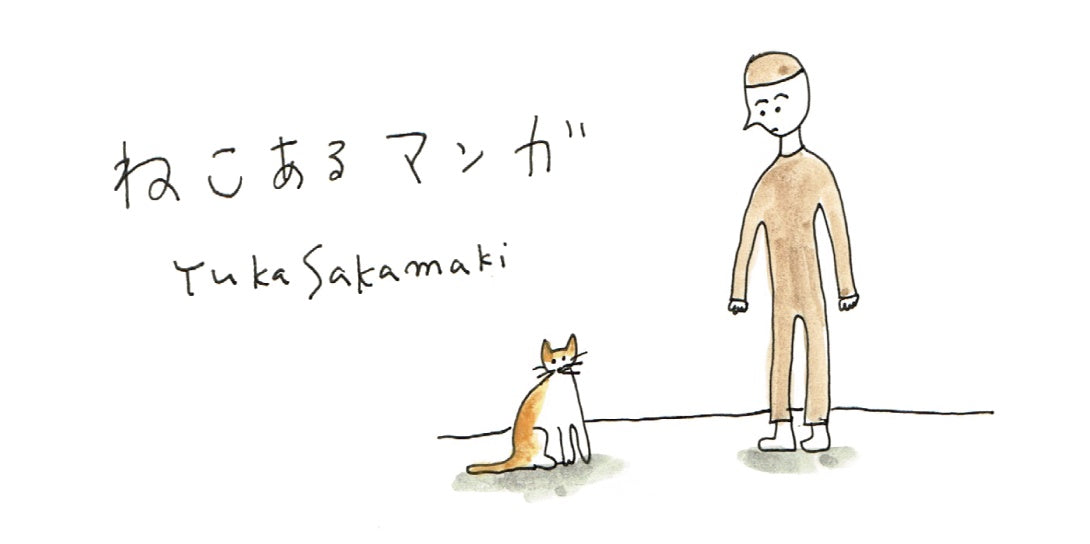 ねこあるマンガ
Yuka Sakamaki